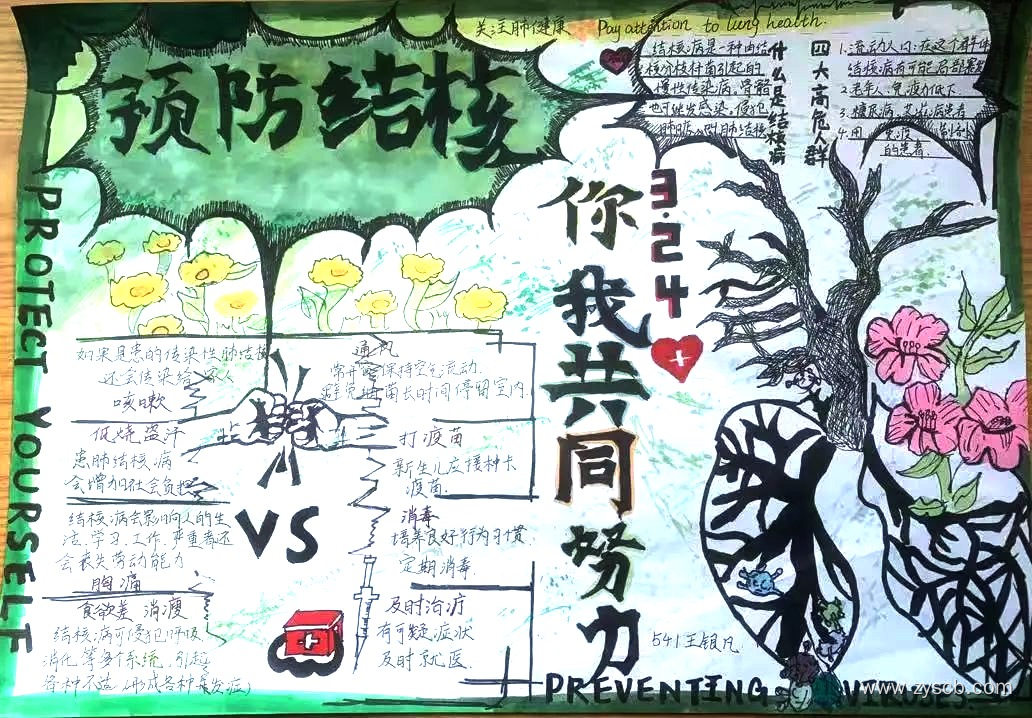 关注肺健康 Pay attention to lung health.
预防结核
PROTECT YOURSELF
你我共同努力
3.24
什么是结核病
结核病是一种由结
核分枝杆菌引起的
慢性传染病,骨骼
也可能发感染,侵犯
四大高危人群
1.流动人口:在这个群体
结核病有可能局部暴发
2.老年人,免疫力低下
3.糖尿病,艾滋病患者
4.用
的患者.
如果是患的传染性肺结核
还会传染给家人
咳嗽
低烧盗汗
患肺结核病
会增加社会负担
结核病会影响人的生
活.学习.工作,严重者还
会丧失劳动能力
胸痛
食欲差 消瘦
结核病可侵犯呼吸
消化等多个系统,引起
各种不适
VS
通风
常开窗保持空气流动.
避免细菌长时间停留室内.
打疫苗
新生儿应接种卡
疫苗.
消毒
培养良好行为习惯
定期消毒
及时治疗
有可疑症状
及时就医.
541王银凡
PREVENTING VIRUSES.
www.zyscb.com